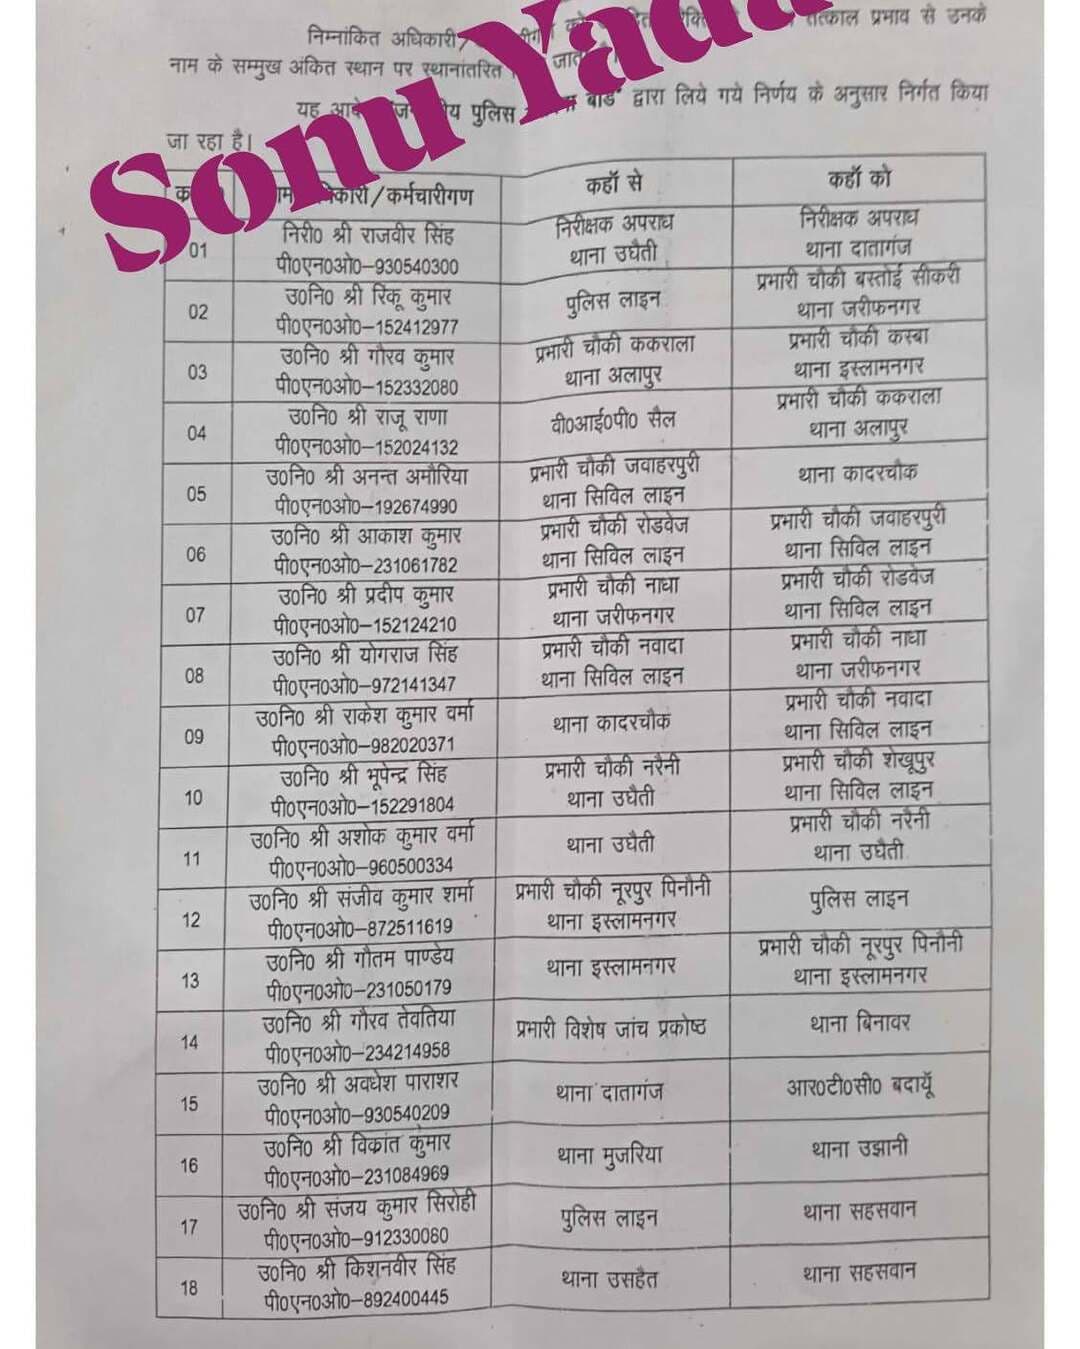 निम्नांकित अधिकारी/ तत्काल प्रभाव से उनके
नाम के सम्मुख अंकित स्थान पर स्थानांतरित
यह पुलिस बोर्ड" द्वारा लिये गये निर्णय के अनुसार निर्गत किया
जा रहा है।
Sonu Yada
/कर्मचारीगण कहाँ से कहाँ को
01 निरी0 श्री राजवीर सिंह
पी0एन0ओ0-930540300 निरीक्षक अपराध
थाना उघैती निरीक्षक अपराध
थाना दातागंज
02 उ0नि0 श्री रिंकू कुमार
पी0एन0ओ0-152412977 पुलिस लाइन प्रभारी चौकी बस्तोई सीकरी
थाना जरीफनगर
03 उ0नि0 श्री गौरव कुमार
पी0एन0ओ0-152332080 प्रभारी चौकी ककराला
थाना अलापुर प्रभारी चौकी कस्बा
थाना इस्लामनगर
04 उ0नि0 श्री राजू राणा
पी0एन0ओ0-152024132 वी0आई0पी0 सैल प्रभारी चौकी ककराला
थाना अलापुर
05 उ0नि0 श्री अनन्त अमौरिया
पी0एन0ओ0-192674990 प्रभारी चौकी जवाहरपुरी
थाना सिविल लाइन थाना कादरचौक
06 उ0नि0 श्री आकाश कुमार
पी0एन0ओ0-231061782 प्रभारी चौकी रोडवेज
थाना सिविल लाइन प्रभारी चौकी जवाहरपुरी
थाना सिविल लाइन
07 उ0नि0 श्री प्रदीप कुमार
पी0एन0ओ0-152124210 प्रभारी चौकी नाधा
थाना जरीफनगर प्रभारी चौकी रोडवेज
थाना सिविल लाइन
08 उ0नि0 श्री योगराज सिंह
पी0एन0ओ0-972141347 प्रभारी चौकी नवादा
थाना सिविल लाइन प्रभारी चौकी नाधा
थाना जरीफनगर
09 उ0नि0 श्री राकेश कुमार वर्मा
पी0एन0ओ0-982020371 थाना कादरचौक प्रभारी चौकी नवादा
थाना सिविल लाइन
10 उ0नि0 श्री भूपेन्द्र सिंह
पी0एन0ओ0-152291804 प्रभारी चौकी नरैनी
थाना उघैती प्रभारी चौकी शेखूपुर
थाना सिविल लाइन
11 उ0नि0 श्री अशोक कुमार वर्मा
पी0एन0ओ0-960500334 थाना उघैती प्रभारी चौकी नरैनी
थाना उघैती
12 उ0नि0 श्री संजीव कुमार शर्मा
पी0एन0ओ0-872511619 प्रभारी चौकी नूरपुर पिनौनी
थाना इस्लामनगर पुलिस लाइन
13 उ0नि0 श्री गौतम पाण्डेय
पी0एन0ओ0-231050179 थाना इस्लामनगर प्रभारी चौकी नूरपुर पिनौनी
थाना इस्लामनगर
14 उ0नि0 श्री गौरव तेवतिया
पी0एन0ओ0-234214958 प्रभारी विशेष जांच प्रकोष्ठ थाना बिनावर
15 उ0नि0 श्री अवधेश पाराशर
पी0एन0ओ0-930540209 थाना दातागंज आर0टी0सी0 बदायूँ
16 उ0नि0 श्री विक्रांत कुमार
पी0एन0ओ0-231084969 थाना मुजरिया थाना उझानी
17 उ0नि0 श्री संजय कुमार सिरोही
पी0एन0ओ0-912330080 पुलिस लाइन थाना सहसवान
18 उ0नि0 श्री किशनवीर सिंह
पी0एन0ओ0-892400445 थाना उसहैत थाना सहसवान